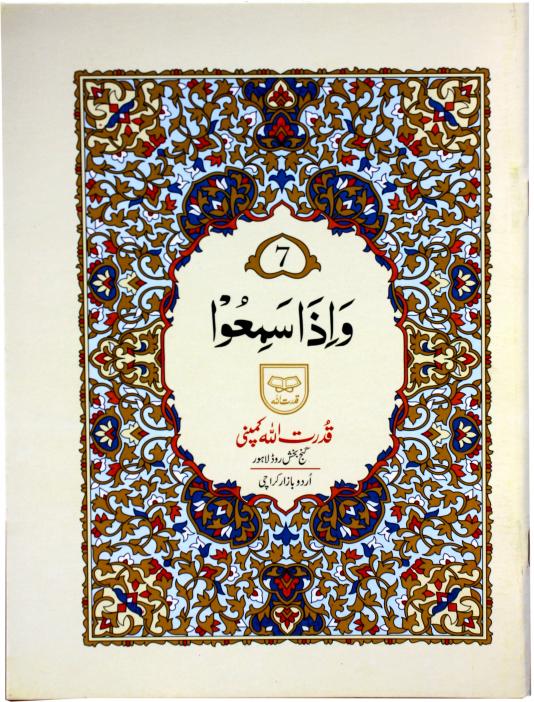 7
وَاِذَا سَمِعُوْا
قدرت اللہ
قُدرت اللہ کمپنی
گنج بخش روڈ لاہور
اُردو بازار کراچی